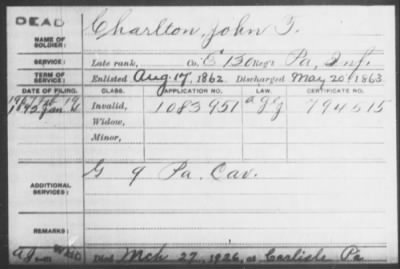 DEAD
NAME OF SOLDIER: Charlton, John T.
SERVICE: Late rank, Co. E 130 Reg't Pa. Inf.
TERM OF SERVICE: Enlisted Aug. 17, 1862 Discharged May 20 1863
DATE OF FILING. CLASS. APPLICATION NO. LAW. CERTIFICATE NO.
Invalid, 1083951 794515
Widow,
Minor,
ADDITIONAL SERVICES: G 9 Pa. Cav.
REMARKS:
Died Mch 27, 1926, at Carlisle Pa